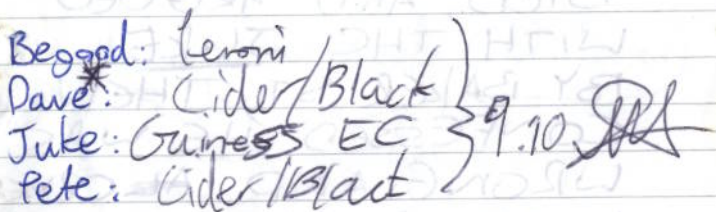 Beggod: Peroni
Dave*: Cider/Black
Juke: Guiness EC
Pete: Cider/Black
9.10